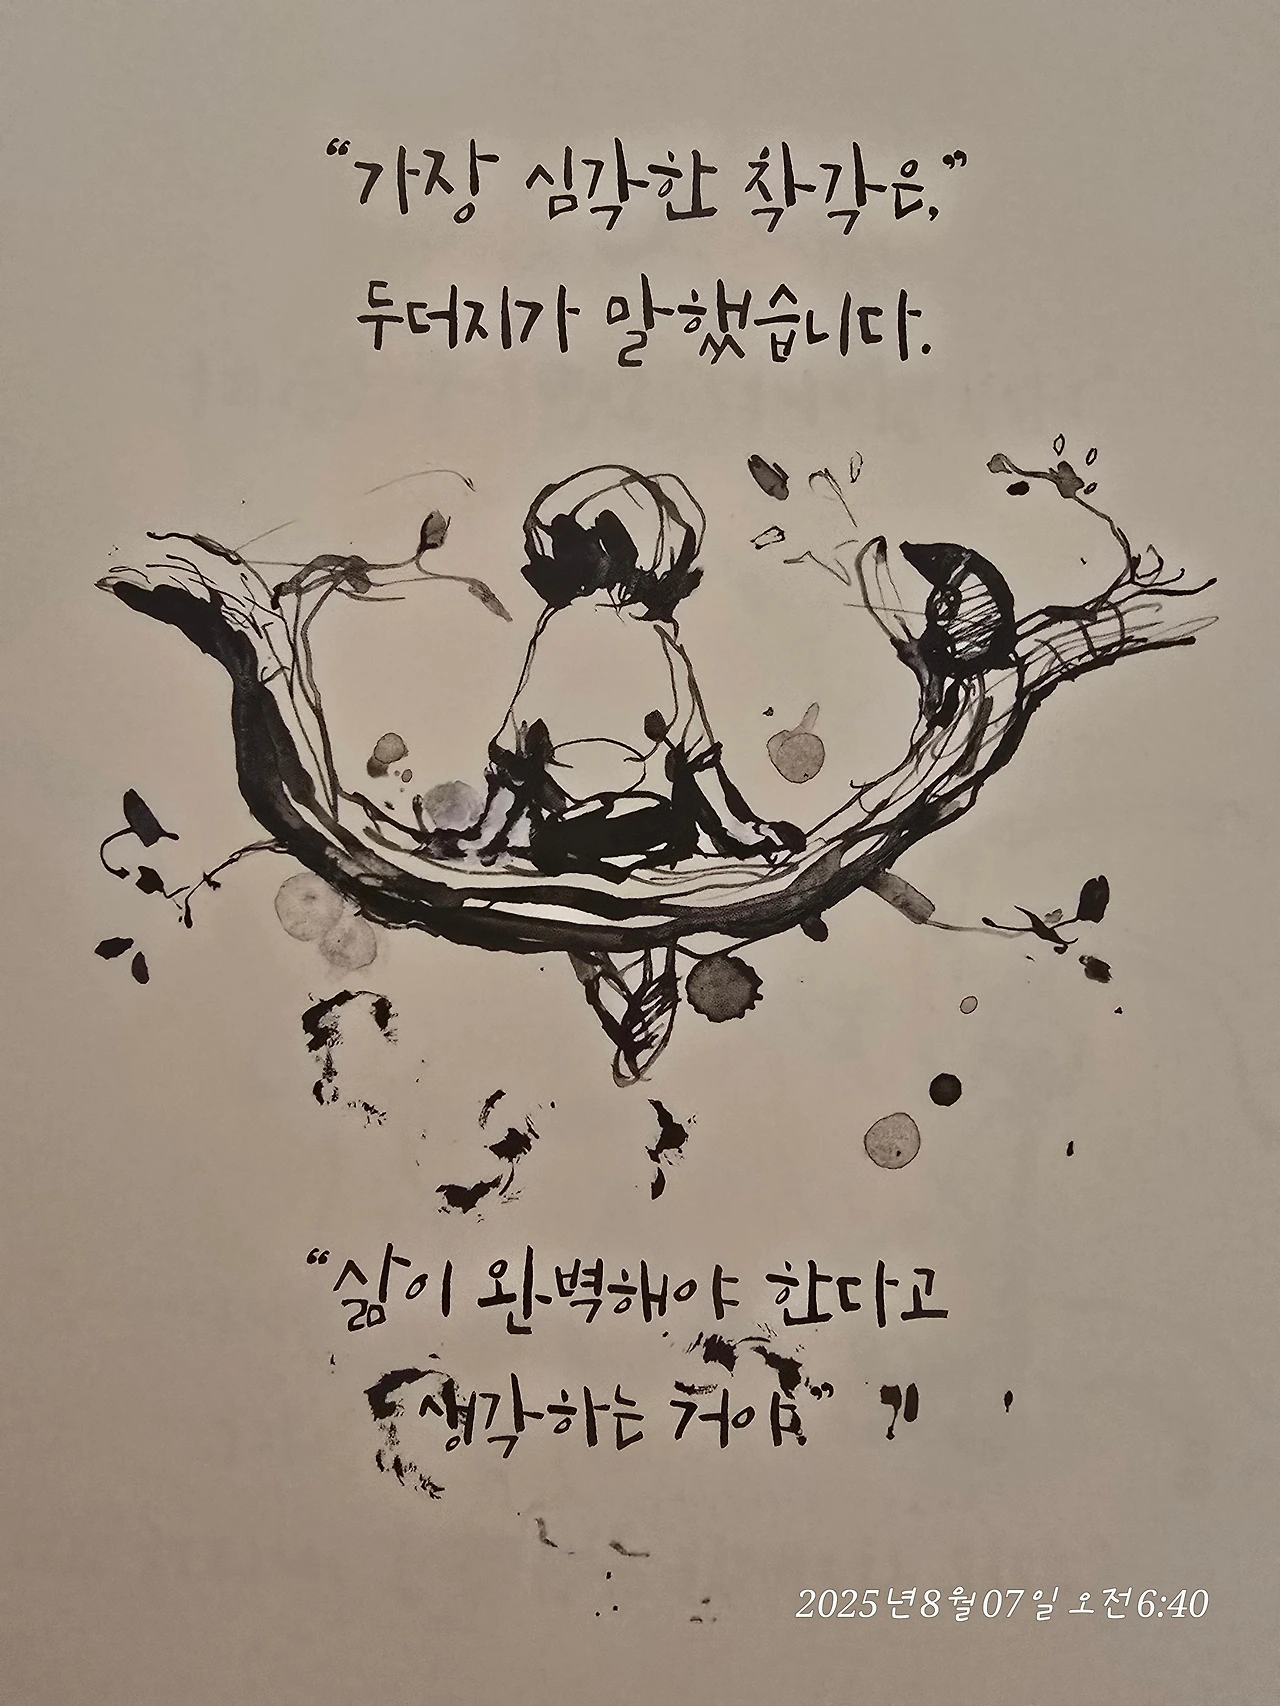 “가장 심각한 착각은,”
두더지가 말했습니다.
“삶이 완벽해야 한다고
생각하는 거야.”
2025년 8월 07일 오전 6:40